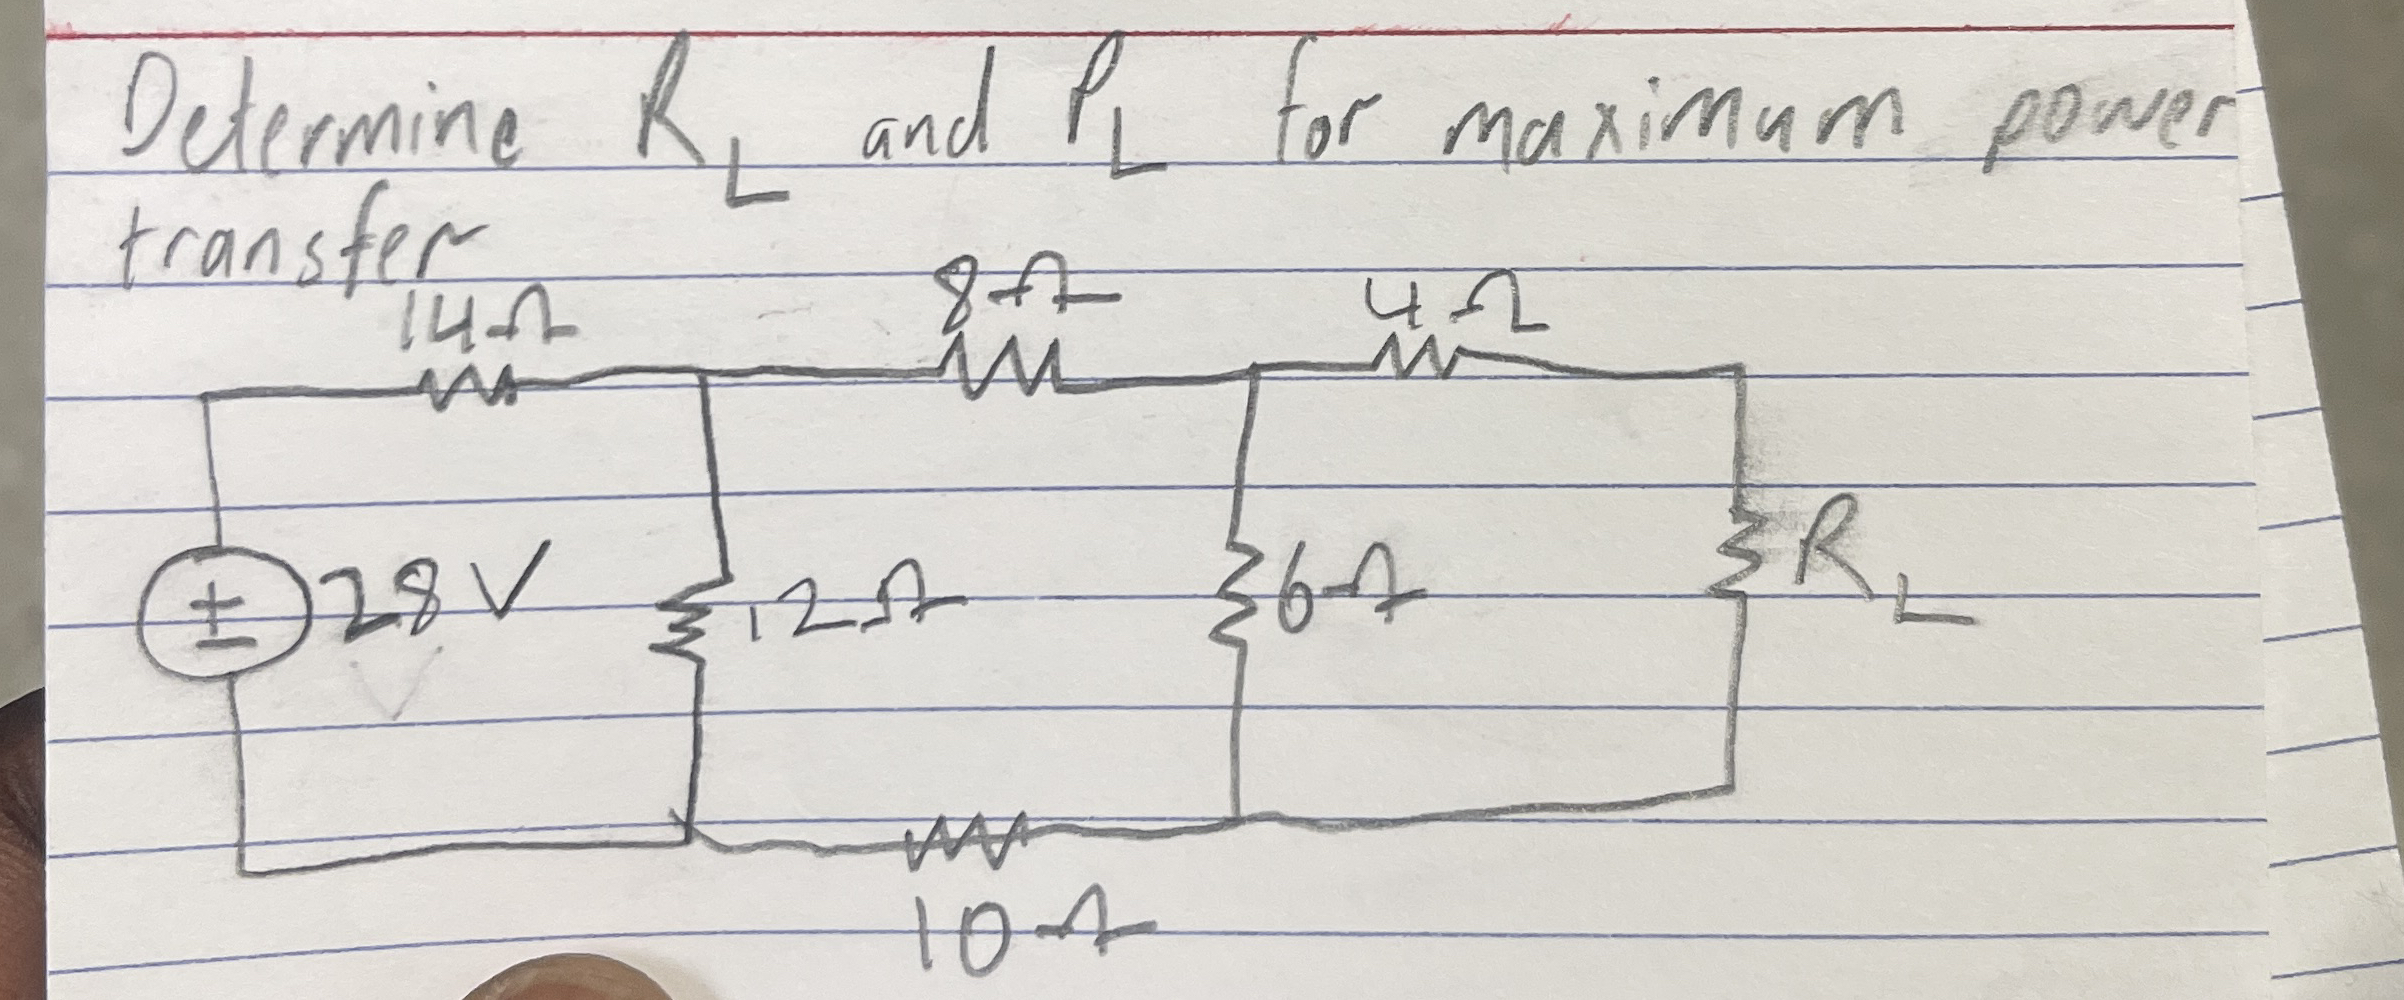 Determine R_L and P_L for maximum power
transfer
14Ω 8Ω 4Ω
± 28V 12Ω 6Ω R_L
10Ω